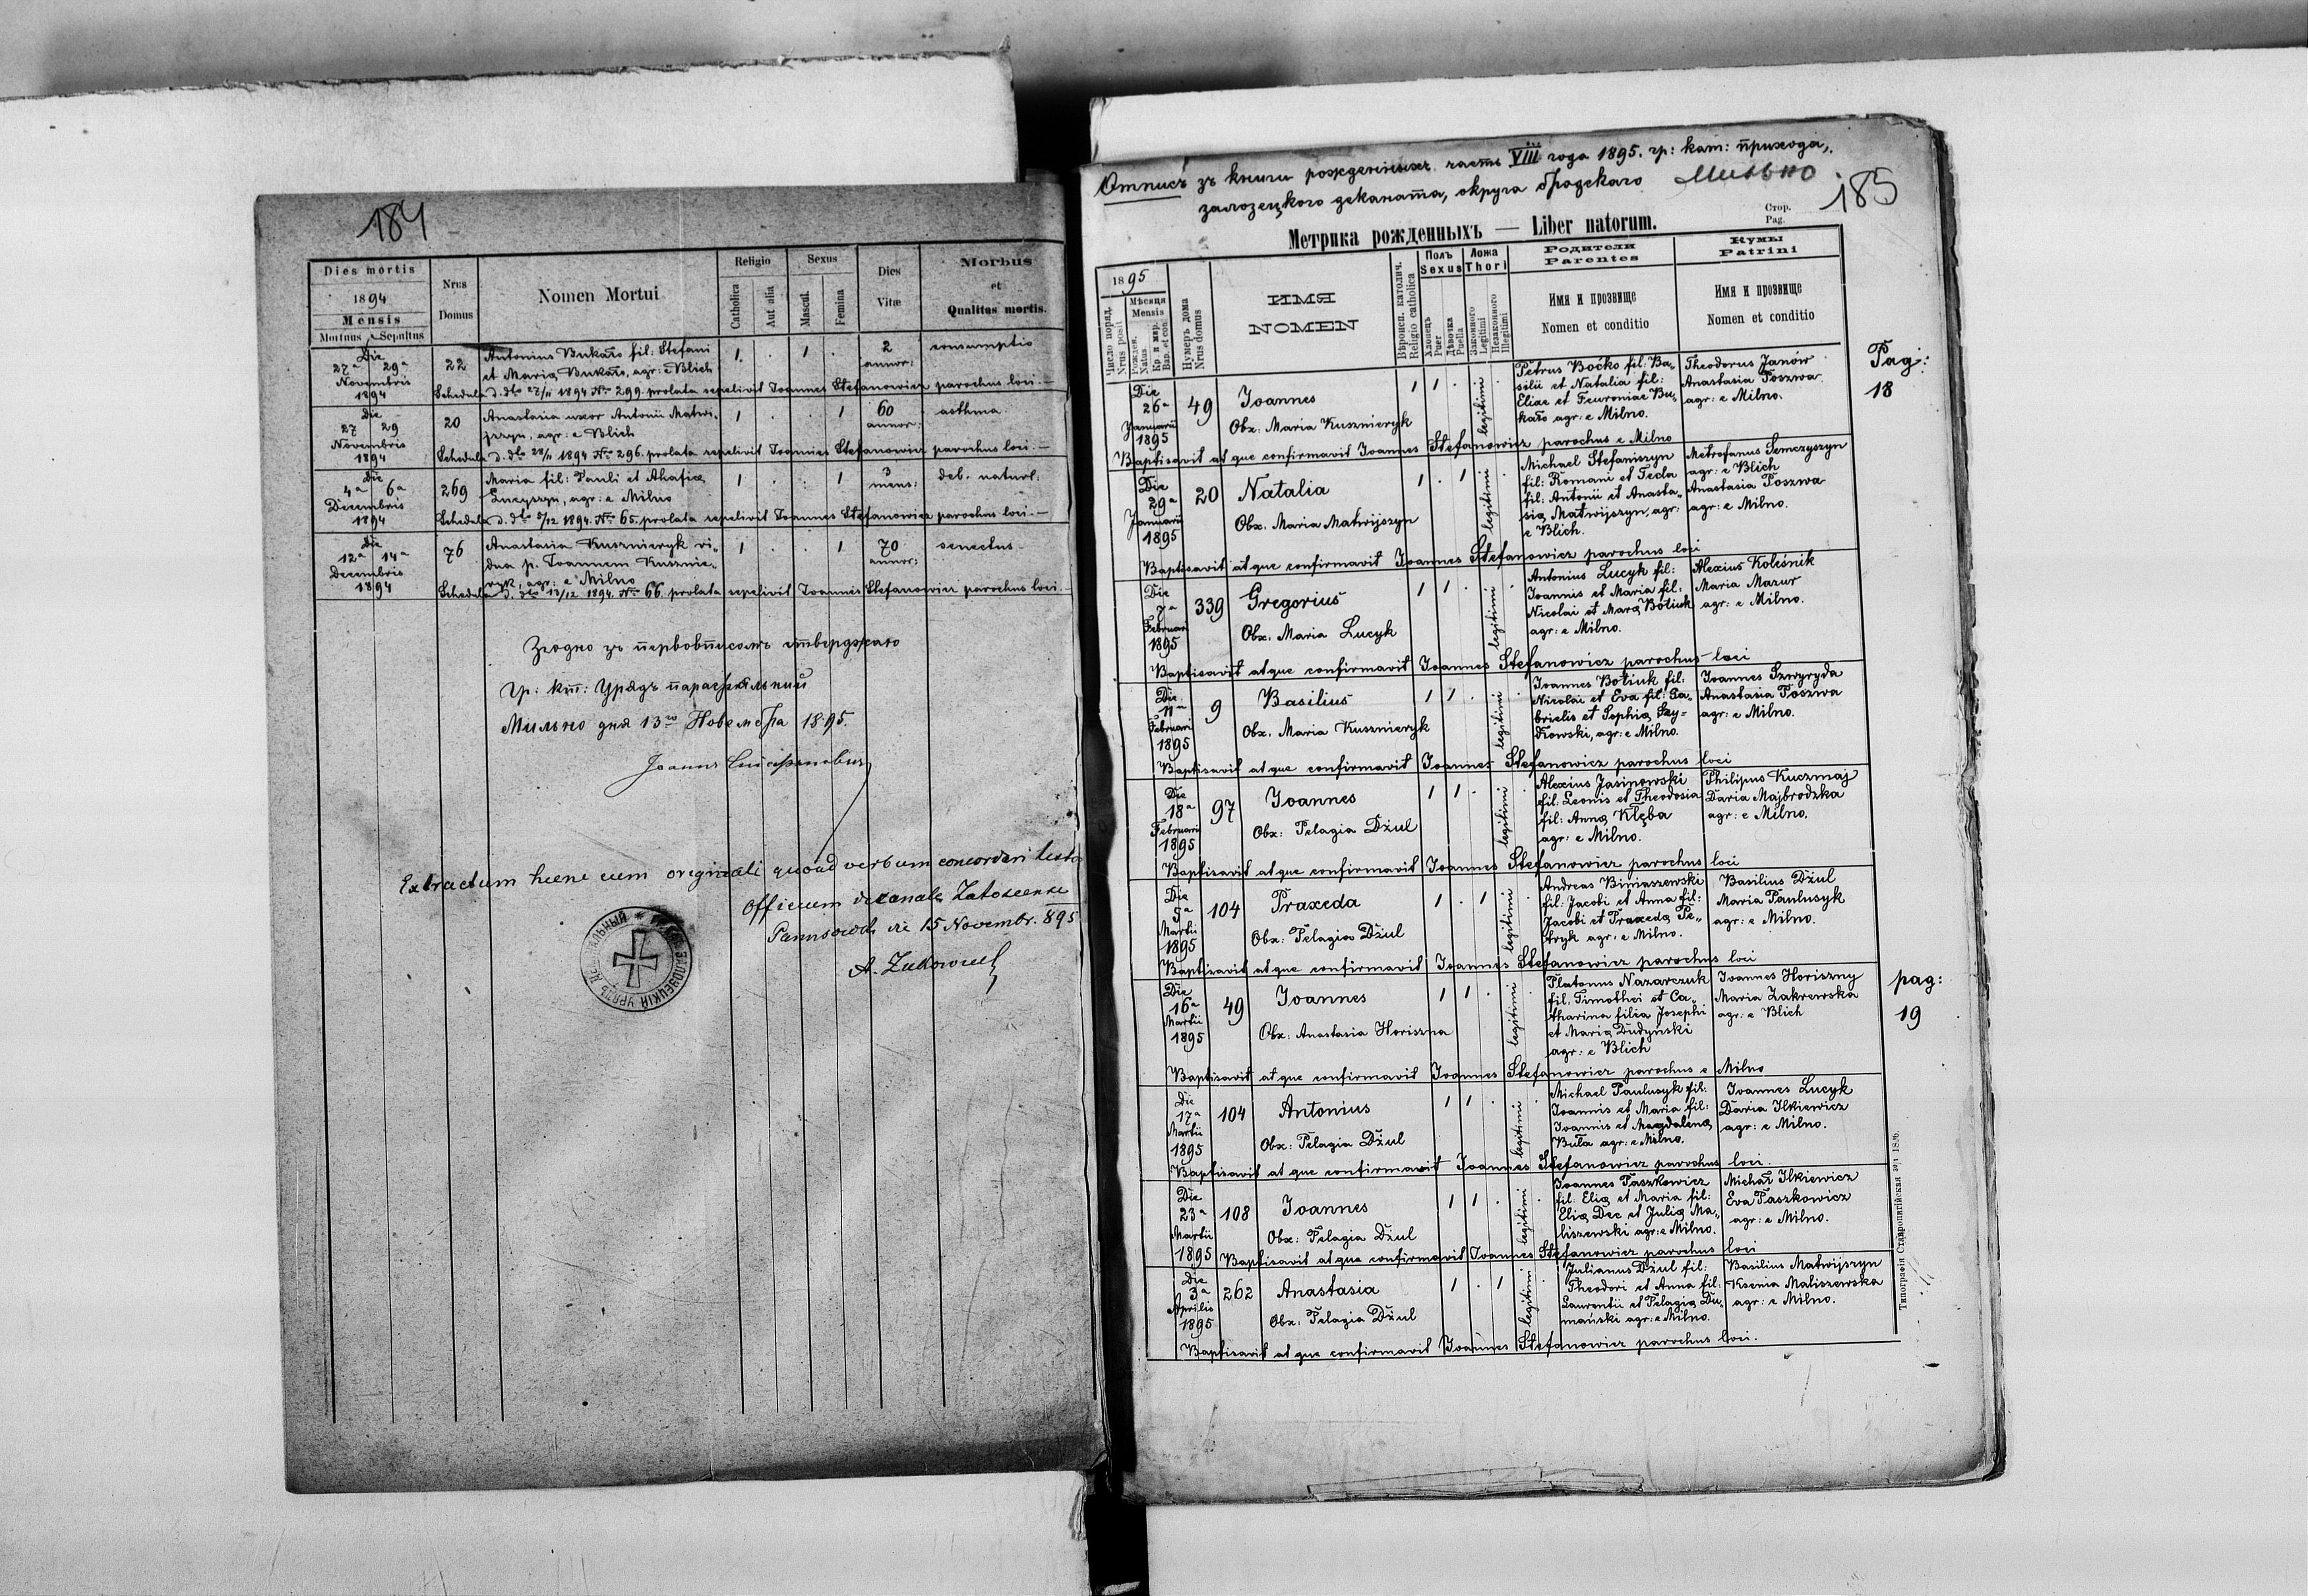 184
Dies mortis
1894
Mensis
Mortuus Sepultus
Nrus
Domus
Nomen Mortui
Religio
Catholica
Aut alia
Sexus
Mascul.
Femina
Dies
Vitæ
Morbus
et
Qualitas mortis.
Die
27ª 29ª
Novembris
1894
22
Antonius Bukało fil: Stefani
et Maria Bukało, agr: e Blich
1 . 1 .
2
annor:
consumptio
Schedula d. dto 28/11 1894 Nro 299. prolata sepelivit Joannes Stefanowicz parochus loci.
Die
27 29
Novembris
1894
20
Anastasia uxor Antonii Matwi-
jszyn, agr: e Blich
1 . . 1
60
annor:
asthma
Schedula d. dto 28/11 1894 Nro 296. prolata sepelivit Joannes Stefanowicz parochus loci.
Die
4ª 6ª
Decembris
1894
269
Maria fil: Pauli et Ahafia
Lucyszyn, agr: e Milno
1 . . 1
3
mens:
deb. natural:
Schedula d. dto 5/12 1894. Nro 65. prolata sepelivit Joannes Stefanowicz parochus loci.
Die
12ª 14ª
Decembris
1894
76
Anastasia Kusznieryk vi-
dua p. Joannem Kusznie-
ryk, agr: e Milno
1 . . 1
70
annor:
senectus
Schedula d. dto 13/12 1894. Nro 66. prolata sepelivit Joannes Stefanowicz parochus loci.
Згодно зъ первописомъ стверджаю
Гр: кат: Урядъ парафіяльний
Мильно дня 13го Новембра 1895.
Extractum hocce cum originali quoad verbum concordari testor
Officium decanale
15 Novembr. 895
185
Отписъ зъ книги рожденныхъ часть VIII года 1895. гр: кат: прихода,
залозецкого деканата, округа бродского Мильно
Стор.
Pag.
Метрика рожденныхъ — Liber natorum.
1895
Число поряд.
Nrus posit
Мѣсяця
Mensis
Рожден.
Natus
Кр. и мѵр.
Bap. et con
Нумеръ дома
Nrus domus
ИМЯ
NOMEN
Вѣроисп. католич.
Religio catholica
Полъ
Sexus
Хлопецъ
Puer
Дѣвочка
Puella
Ложа
Thori
Законного
Legitimi
Незаконного
Illegitimi
Родители
Parentes
Имя и прозвище
Nomen et conditio
Кумы
Patrini
Имя и прозвище
Nomen et conditio
Pag:
18
Die
26ª
Januarii
1895
49
Joannes
Obx. Maria Kusznieryk
1 1 . legitimi .
Petrus Boćko fil: Ba-
silii et Natalia fil:
Eliae et Feuroniae Bu-
kało agr: e Milno.
Theodorus Janów
Anastasia Poszwa
agr: e Milno.
Baptisavit atque confirmavit Joannes Stefanowicz parochus e Milno
Die
29ª
Januarii
1895
20
Natalia
Obx. Maria Matwijszyn
1 . 1 legitimi .
Michael Stefaniszyn
fil: Romani et Tecla
fil: Antonii et Anasta-
sia Matwijszyn, agr:
e Blich.
Metrofanus Semczyszyn
agr: e Blich
Anastasia Poszwa
agr: e Milno.
Baptisavit atque confirmavit Joannes Stefanowicz parochus loci
Die
7ª
Februari
1895
339
Gregorius
Obx. Maria Lucyk
1 1 . legitimi .
Antonius Lucyk fil:
Joannis et Maria fil:
Nicolai et Mara Botiuk
agr: e Milno.
Alexius Koleśnik
Maria Mazur
agr: e Milno.
Baptisavit atque confirmavit Joannes Stefanowicz parochus loci
Die
11ª
Februari
1895
9
Basilius
Obx. Maria Kusznieryk
1 1 . legitimi .
Joannes Botiuk fil:
Nicolai et Eva fil: Ga-
brielis et Sophia Szy-
dłowski, agr: e Milno.
Joannes Szwyryda
Anastasia Poszwa
agr: e Milno.
Baptisavit atque confirmavit Joannes Stefanowicz parochus loci
Die
18ª
Februari
1895
97
Joannes
Obx: Pelagia Dżul
1 1 . legitimi .
Alexius Jasinowski
fil: Leonis et Theodosia
fil: Anna Klęba
agr: e Milno.
Philipus Kuczmaj
Daria Majbrodzka
agr: e Milno.
Baptisavit atque confirmavit Joannes Stefanowicz parochus loci
Die
5ª
Martii
1895
104
Praxeda
Obx: Pelagia Dżul
1 . 1 legitimi
Andreas Biniaszewski
fil: Jacobi et Anna fil:
Jacobi et Praxeda Pe-
tryk agr: e Milno.
Basilius Dżul
Maria Paulusyk
agr: e Milno.
Baptisavit atque confirmavit Joannes Stefanowicz parochus loci
pag:
19
Die
16ª
Martii
1895
49
Joannes
Obx: Anastasia Horiszna
1 1 . legitimi .
Platonus Nazarczuk
fil: Timothei et Ca-
tharina filia Josephi
et Maria Dudyński
agr: e Blich
Joannes Horiszny
Maria Zakrewska
agr: e Blich
Baptisavit atque confirmavit Joannes Stefanowicz parochus e Milno
Die
17ª
Martii
1895
104
Antonius
Obx: Pelagia Dżul
1 1 . legitimi .
Michael Paulusyk fil:
Joannis et Maria fil:
Joannis et Magdalena
Buła agr: e Milno.
Joannes Lucyk
Daria Ilkiewicz
agr: e Milno.
Baptisavit atque confirmavit Joannes Stefanowicz parochus loci.
Die
23ª
Martii
1895
108
Joannes
Obx: Pelagia Dżul
1 1 . legitimi .
Joannes Paszkowicz
fil: Elia et Maria fil:
Elia Dec et Julia Ma-
liszewski agr: e Milno.
Michał Ilkiewicz
Eva Paszkowicz
agr: e Milno.
Baptisavit atque confirmavit Joannes Stefanowicz parochus loci
Die
3ª
Aprilis
1895
262
Anastasia
Obx: Pelagia Dżul
1 . 1 legitimi .
Julianus Dżul fil:
Theodori et Anna fil:
Laurentii et Pelagia Du-
mański agr: e Milno.
Basilius Matwijszyn
Ksenia Maliszewska
agr: e Milno.
Baptisavit atque confirmavit Joannes Stefanowicz parochus loci.
Типографія Ставропигійская